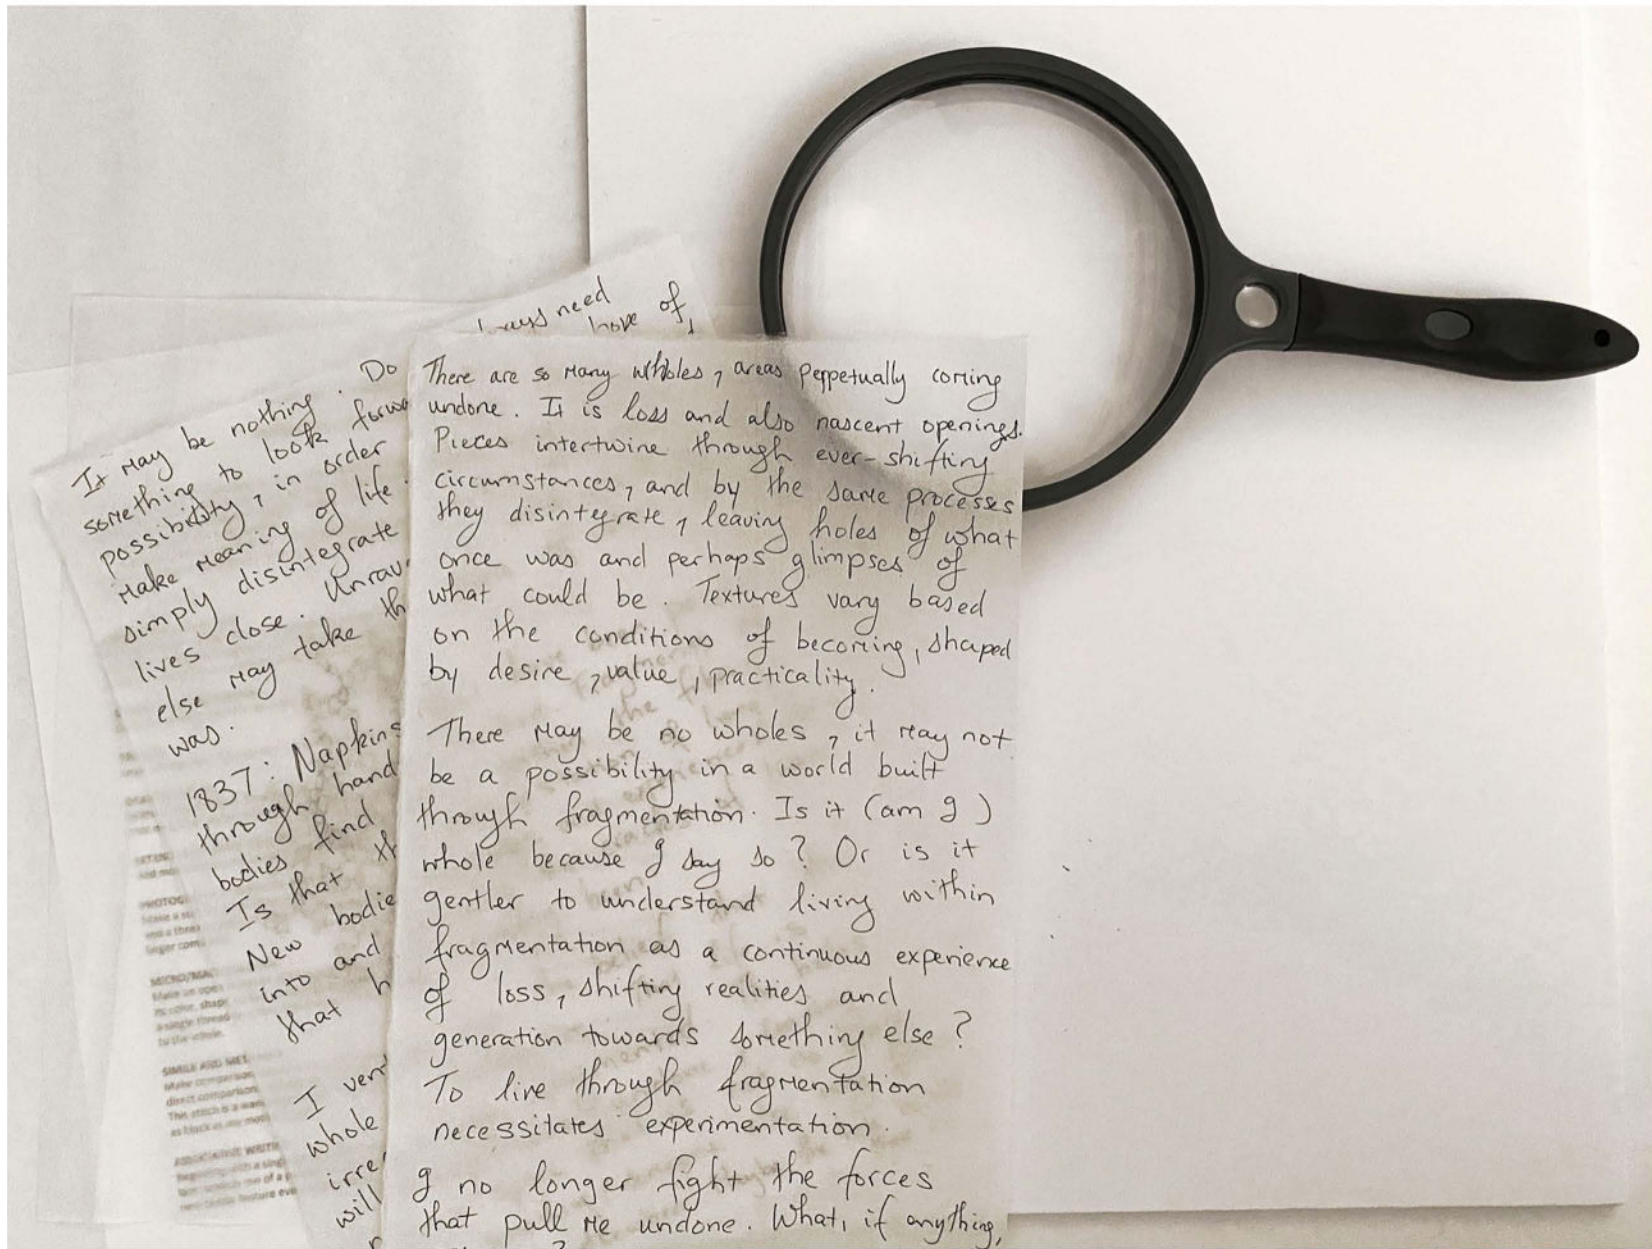 need
hope of
It may be nothing. Do
something to look forwa
possibility, in order
make meaning of life.
simply disintegrate
lives close. Unrav
else may take th
was.
1837: Napkins
through hand
bodies find
Is that th
New bodie
into and
that h
I ven
whole
irre
will
There are so many wholes, areas perpetually coming
undone. It is loss and also nascent openings.
Pieces intertwine through ever-shifting
circumstances, and by the same processes
they disintegrate, leaving holes of what
once was and perhaps glimpses of
what could be. Textures vary based
on the conditions of becoming, shaped
by desire, value, practicality.
There may be no wholes, it may not
be a possibility in a world built
through fragmentation. Is it (am I)
whole because I say so? Or is it
gentler to understand living within
fragmentation as a continuous experience
of loss, shifting realities and
generation towards something else?
To live through fragmentation
necessitates experimentation.
I no longer fight the forces
that pull me undone. What, if anything,
SIMILE AND MET
Make comparison
direct comparison